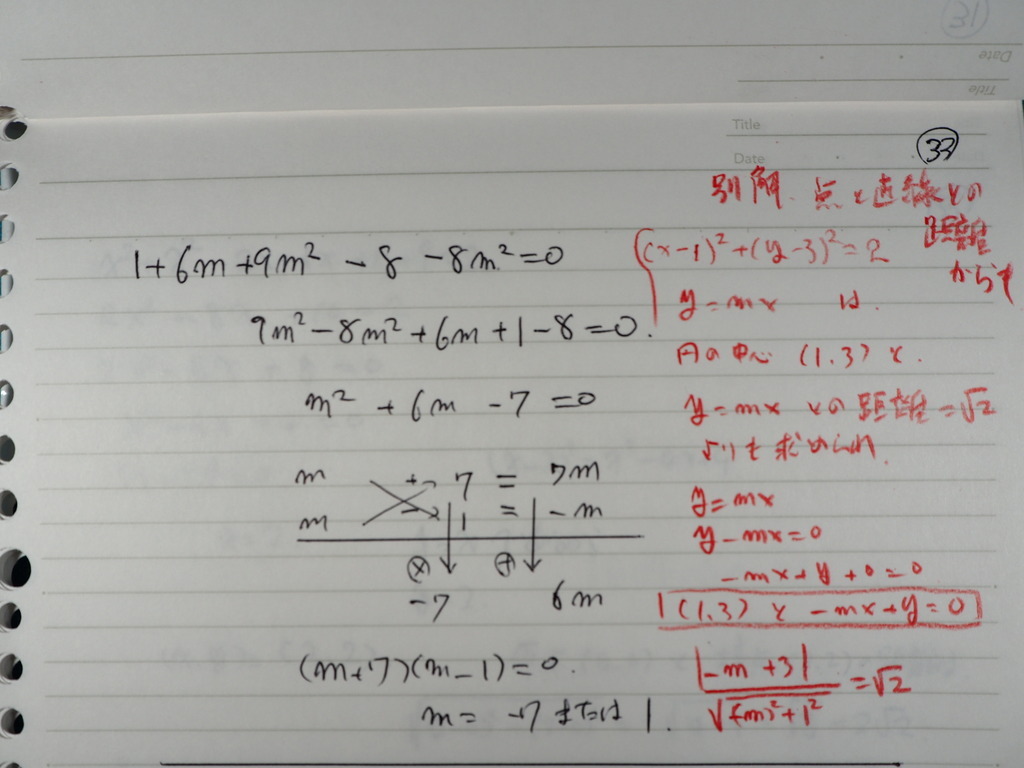 31
Date
Title
Title
Date
33
1+6m+9m²-8-8m²=0
9m²-8m²+6m+1-8=0.
m²+6m-7=0
m +7 = 7m
m -1 = -m
⊗ ⊕
-7 6m
(m+7)(m-1)=0.
m= -7 または 1.
別解. 点と直線との
距離
から
(x-1)²+(y-3)²=2
y=mx は.
円の中心 (1.3) と.
y=mx との距離=√2
よりも求められ.
y=mx
y-mx=0
-mx+y+0=0
(1.3) と -mx+y=0
|-m+3| / √(-m)²+1² =√2